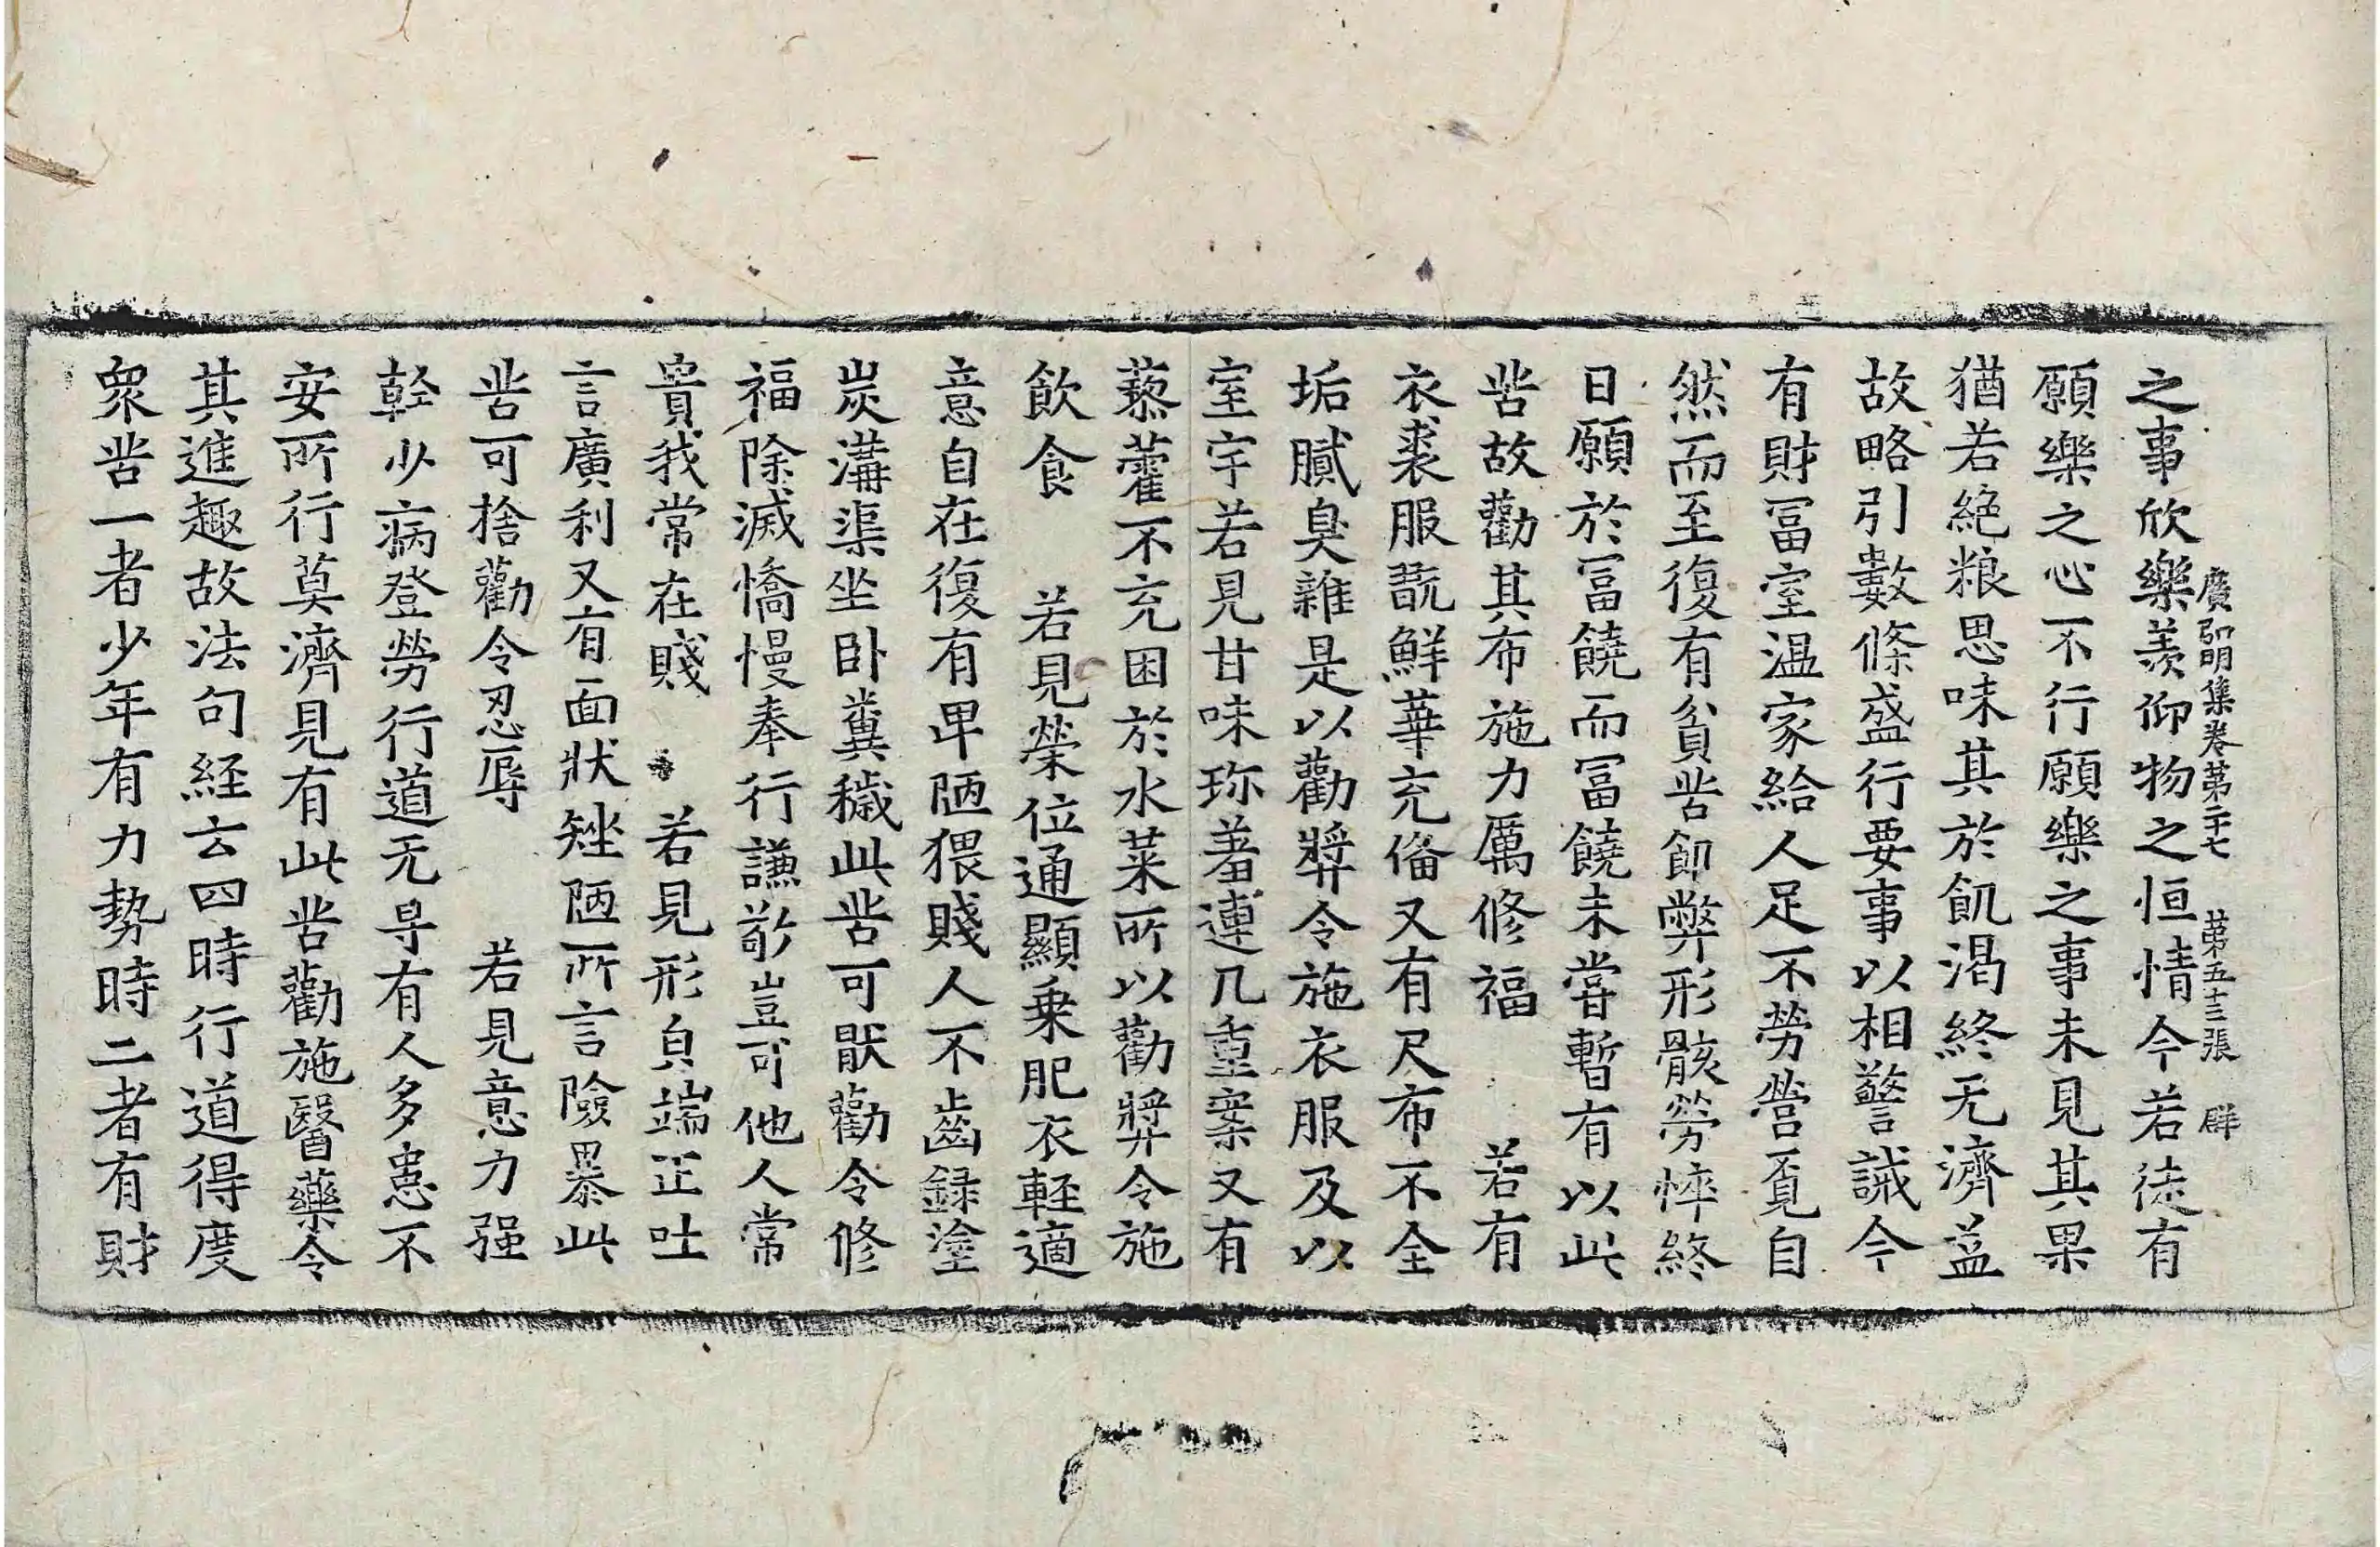 之事欣樂羡仰物之恒情今若徒有
廣弘明集卷第二十七 第五十三張 群
願樂之心不行願樂之事未見其果
猶若絶粮思味其於飢渴終无濟益
故略引數條盛行要事以相警誡今
有財冨室温家給人足不勞營覓自
然而至復有貧苦飢弊形骸勞悴終
日願於冨饒而冨饒未嘗暫有以此
苦故勸其布施力厲修福 若有
衣裘服翫鮮華充俻又有尺布不全
垢膩臭雜是以勸奬令施衣服及以
室宇若見甘味珎羞連几重案又有
藜藿不充困於水菜所以勸奬令施
飲食 若見榮位通顯乗肥衣輕適
意自在復有卑陋猥賤人不齒録塗
炭溝渠坐卧糞穢此苦可猒勸令修
福除滅憍慢奉行謙敬豈可他人常
貴我常在賤 若見形皃端正吐
言廣利又有面狀矬陋所言險暴此
苦可捨勸令忍辱 若見意力强
幹少病登勞行道无㝵有人多患不
安所行莫濟見有此苦勸施醫藥令
其進趣故法句経云四時行道得度
衆苦一者少年有力勢時二者有財